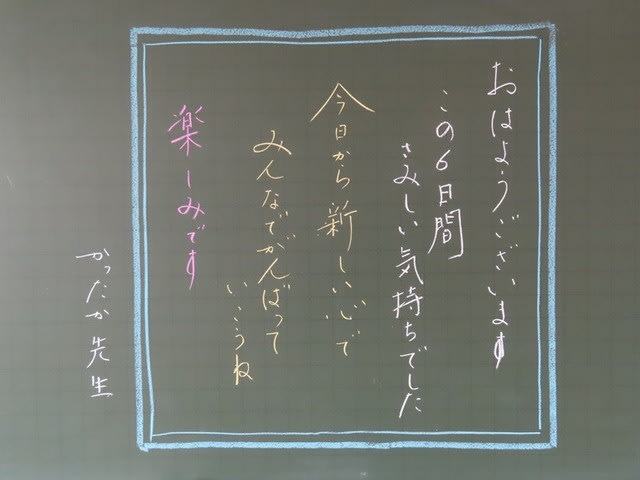 おはようございます
この6日間
さみしい気持ちでした
今日から新しい心で
みんなでがんばって
いこうね
楽しみです
かったか先生